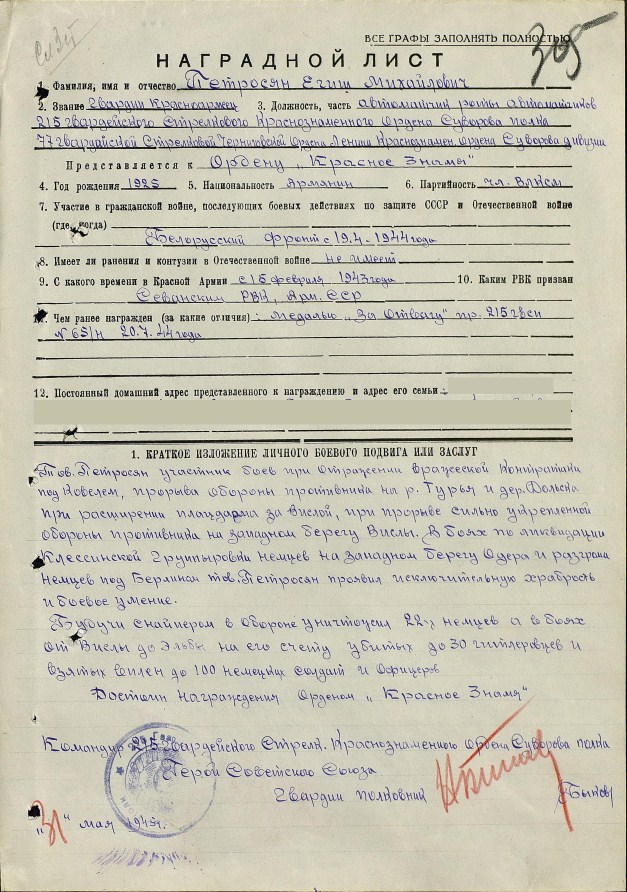 ВСЕ ГРАФЫ ЗАПОЛНЯТЬ ПОЛНОСТЬЮ
305
НАГРАДНОЙ ЛИСТ
1. Фамилия, имя и отчество Петросян Егиш Михайлович
2. Звание Гвардии Красноармеец 3. Должность, часть автоматчик роты автоматчиков
215 гвардейского Стрелкового Краснознаменного Ордена Суворова полка
77 гвардейской Стрелковой Черниговской Ордена Ленина Краснознамен. Ордена Суворова дивизии
Представляется к Ордену „Красное Знамя"
4. Год рождения 1925 5. Национальность Армянин 6. Партийность чл. ВЛКСМ
7. Участие в гражданской войне, последующих боевых действиях по защите СССР и Отечественной войне
(где, когда)
Белорусский фронт с 19.4-1944 года
8. Имеет ли ранения и контузии в Отечественной войне не имеет
9. С какого времени в Красной Армии с 15 февраля 1943 года 10. Каким РВК призван
Севанским РВК, Арм. ССР
11. Чем ранее награжден (за какие отличия): медалью „За Отвагу" пр. 215 гвсп
N 65/н 20.7.44 года
12. Постоянный домашний адрес представленного к награждению и адрес его семьи:
1. КРАТКОЕ ИЗЛОЖЕНИЕ ЛИЧНОГО БОЕВОГО ПОДВИГА ИЛИ ЗАСЛУГ
Тов. Петросян участник боев при отражении вражеской контратаки
под Ковелем, прорыва обороны противника на р. Турья и дер. Дольска
при расширении плацдарма за Вислой, при прорыве сильно укрепленной
обороны противника на западном берегу Вислы. В боях по ликвидации
Клессинской группировки немцев на западном берегу Одера и разгрома
немцев под Берлином тов. Петросян проявил исключительную храбрость
и боевое умение.
Будучи снайпером в обороне уничтожил 22-х немцев а в боях
от Вислы до Эльбы на его счету убитых до 30 гитлеровцев и
взятых в плен до 100 немецких солдат и офицеров
Достоин награждения Орденом „Красное Знамя"
Командир 215 гвардейского Стрелк. Краснознаменного ордена Суворова полка
Герой Советского Союза
Гвардии полковник Быков
„31" мая 1945г.